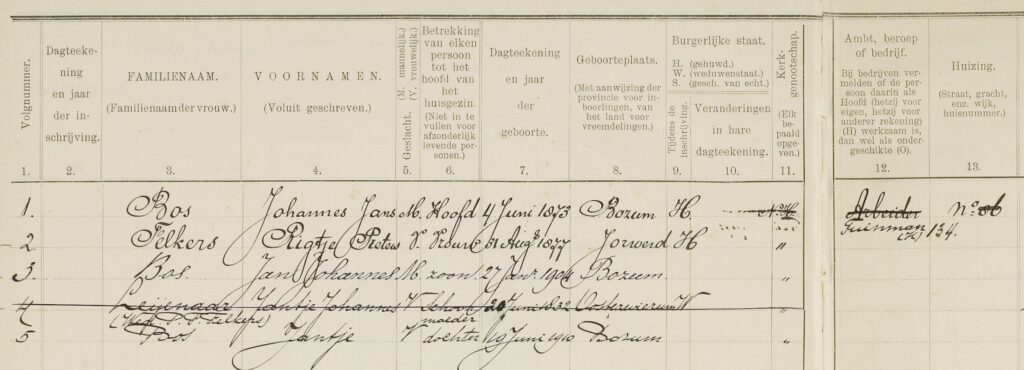 Volgnummer.
Dagteeke-
ning
en jaar
der in-
schrijving.
FAMILIENAAM.
(Familienaam der vrouw.)
VOORNAMEN.
(Voluit geschreven.)
Geslacht. (M. mannelijk.) (V. vrouwelijk.)
Betrekking
van elken
persoon
tot het
hoofd van
het
huisgezin.
(Niet in te
vullen voor
afzonderlijk
levende per-
sonen.)
Dagteekening
en jaar
der
geboorte.
Geboorteplaats.
(Met aanwijzing der
provincie voor in-
boorlingen, van
het land voor
vreemdelingen.)
Burgerlijke staat.
H. (gehuwd.)
W. (weduwenstaat.)
S. (gesch. van echt.)
Tijdens de
inschrijving.
Veranderingen
in hare
dagteekening.
Kerk-
genootschap.
(Elk
bepaald
opge-
ven.)
Ambt, beroep
of bedrijf.
Bij bedrijven ver-
melden of de per-
soon daarin als
Hoofd (hetzij voor
eigen, hetzij voor
anderer rekening)
(H) werkzaam is,
dan wel als onder-
geschikte (O).
Huizing.
(Straat, gracht,
enz. wijk,
huisnummer.)
1. 2. 3. 4. 5. 6. 7. 8. 9. 10. 11. 12. 13.
1. Bos Johannes Jans M. Hoofd 4 Juni 1873 Bozum H. N.H. Arbeider No.
Tuinman (H) 134.
2. Felkers Rigtje Pieters V. Vrouw 31 Augs 1877 Jorwerd H "
3. Bos. Jan Johannes M. zoon. 27 Janr. 1904 Bozum. "
4 Leijenaar Jantje Johannes V Schoon 20 Juni 1832 Oosterwierum W "
(Wed. P. J. Felkers) moeder
5 Bos Jantje V dochter 19 Juni 1910 Bozum "